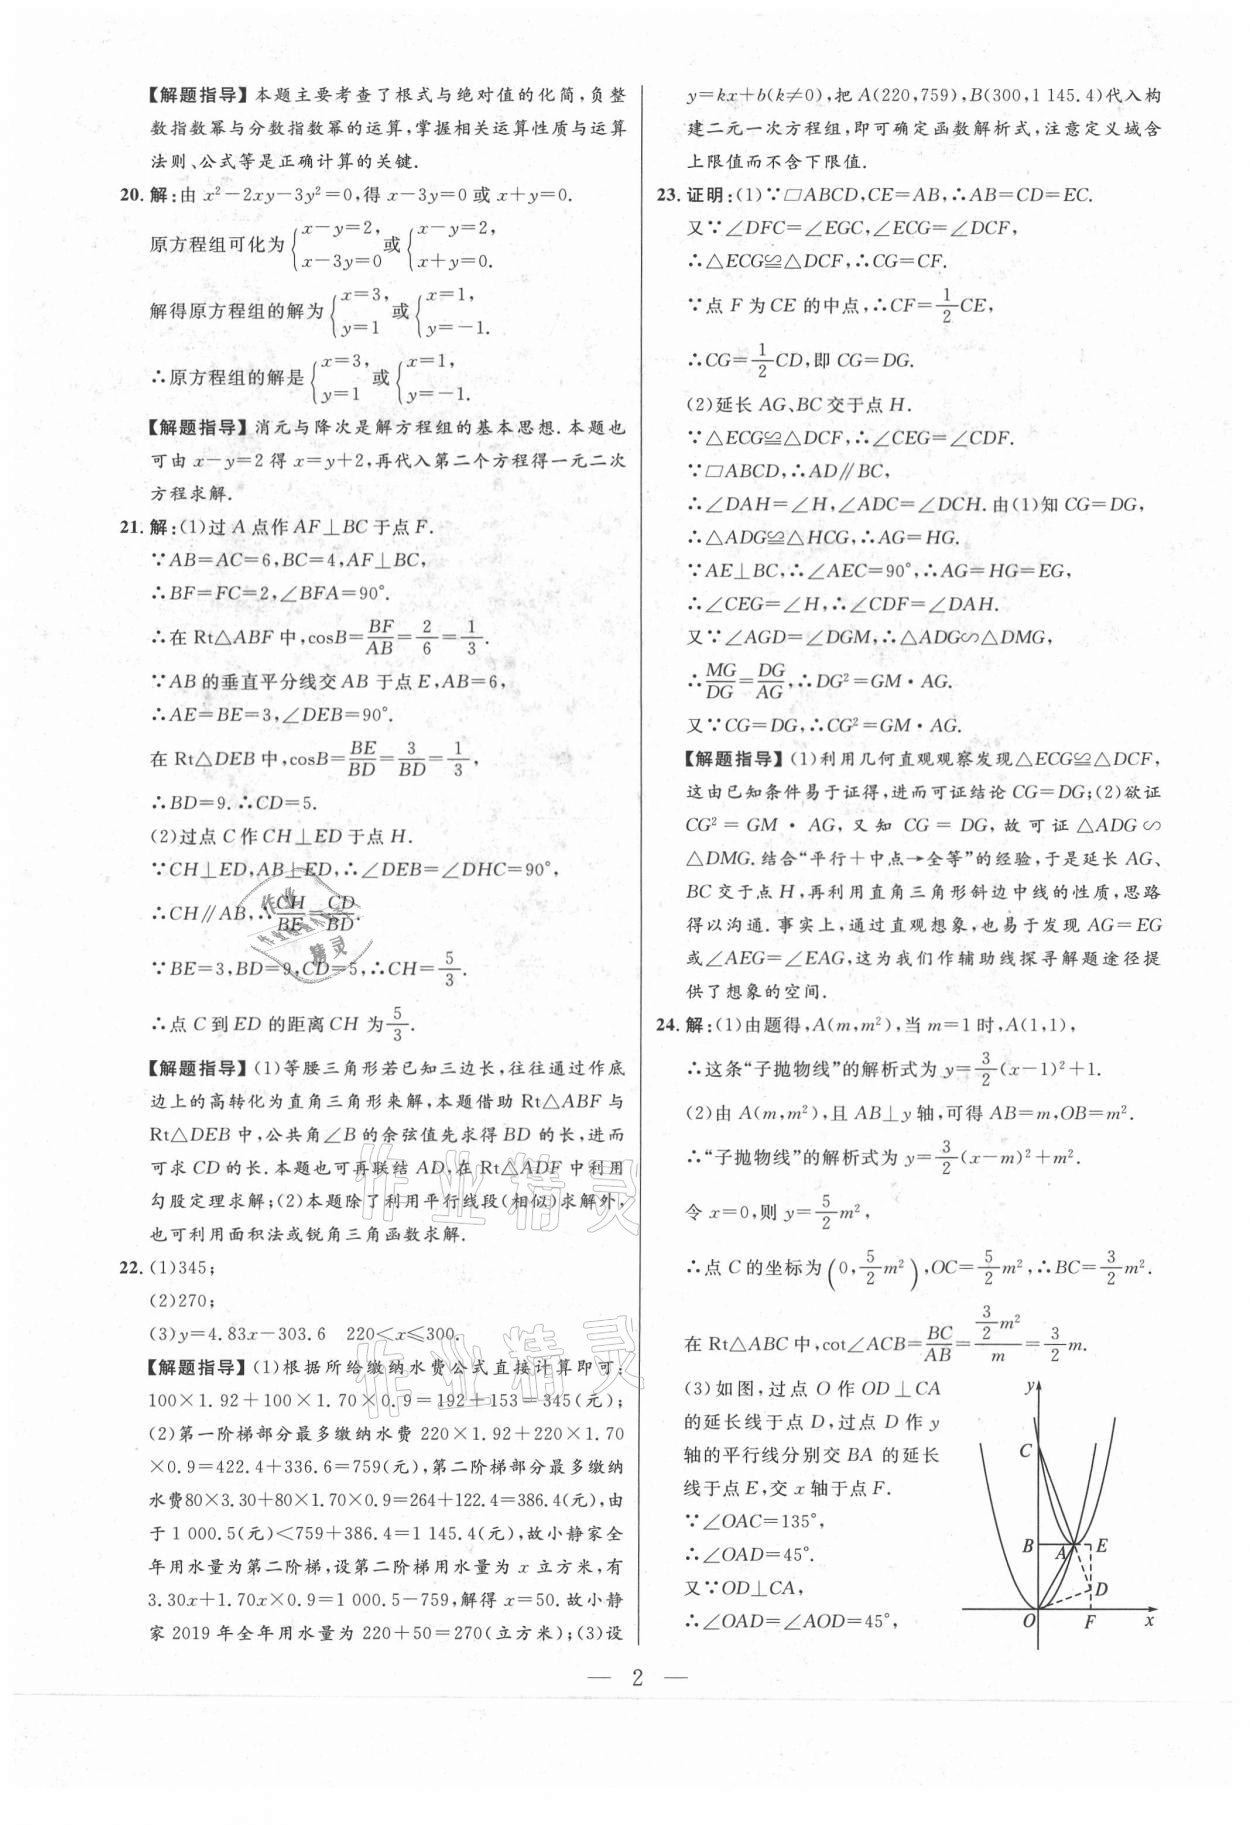 【解题指导】本题主要考查了根式与绝对值的化简,负整
数指数幂与分数指数幂的运算,掌握相关运算性质与运算
法则、公式等是正确计算的关键.
20. 解:由 x²－2xy－3y²＝0,得 x－3y＝0 或 x＋y＝0.
原方程组可化为{x－y＝2, x－3y＝0 或{x－y＝2, x＋y＝0.
解得原方程组的解为{x＝3, y＝1 或{x＝1, y＝－1.
∴原方程组的解是{x＝3, y＝1 或{x＝1, y＝－1.
【解题指导】消元与降次是解方程组的基本思想.本题也
可由 x－y＝2 得 x＝y＋2,再代入第二个方程得一元二次
方程求解.
21. 解:(1)过 A 点作 AF⊥BC 于点 F.
∵AB＝AC＝6,BC＝4,AF⊥BC,
∴BF＝FC＝2,∠BFA＝90°.
∴在 Rt△ABF 中,cosB＝BF/AB＝2/6＝1/3.
∵AB 的垂直平分线交 AB 于点 E,AB＝6,
∴AE＝BE＝3,∠DEB＝90°.
在 Rt△DEB 中,cosB＝BE/BD＝3/BD＝1/3,
∴BD＝9.∴CD＝5.
(2)过点 C 作 CH⊥ED 于点 H.
∵CH⊥ED,AB⊥ED,∴∠DEB＝∠DHC＝90°,
∴CH∥AB,∴CH/BE＝CD/BD.
∵BE＝3,BD＝9,CD＝5,∴CH＝5/3.
∴点 C 到 ED 的距离 CH 为 5/3.
【解题指导】(1)等腰三角形若已知三边长,往往通过作底
边上的高转化为直角三角形来解,本题借助 Rt△ABF 与
Rt△DEB 中,公共角∠B 的余弦值先求得 BD 的长,进而
可求 CD 的长.本题也可再联结 AD,在 Rt△ADF 中利用
勾股定理求解;(2)本题除了利用平行线段(相似)求解外,
也可利用面积法或锐角三角函数求解.
22. (1)345;
(2)270;
(3)y＝4.83x－303.6　220＜x≤300.
【解题指导】(1)根据所给缴纳水费公式直接计算即可:
100×1.92＋100×1.70×0.9＝192＋153＝345(元);
(2)第一阶梯部分最多缴纳水费 220×1.92＋220×1.70
×0.9＝422.4＋336.6＝759(元),第二阶梯部分最多缴纳
水费80×3.30＋80×1.70×0.9＝264＋122.4＝386.4(元),由
于 1 000.5(元)＜759＋386.4＝1 145.4(元),故小静家全
年用水量为第二阶梯,设第二阶梯用水量为 x 立方米,有
3.30x＋1.70x×0.9＝1 000.5－759,解得 x＝50.故小静
家 2019 年全年用水量为 220＋50＝270(立方米);(3)设
y＝kx＋b(k≠0),把 A(220,759),B(300,1 145.4)代入构
建二元一次方程组,即可确定函数解析式,注意定义域含
上限值而不含下限值.
23. 证明:(1)∵▱ABCD,CE＝AB,∴AB＝CD＝EC.
又∵∠DFC＝∠EGC,∠ECG＝∠DCF,
∴△ECG≌△DCF,∴CG＝CF.
∵点 F 为 CE 的中点,∴CF＝1/2CE,
∴CG＝1/2CD,即 CG＝DG.
(2)延长 AG、BC 交于点 H.
∵△ECG≌△DCF,∴∠CEG＝∠CDF.
∵▱ABCD,∴AD∥BC,
∴∠DAH＝∠H,∠ADC＝∠DCH.由(1)知 CG＝DG,
∴△ADG≌△HCG,∴AG＝HG.
∵AE⊥BC,∴∠AEC＝90°,∴AG＝HG＝EG,
∴∠CEG＝∠H,∴∠CDF＝∠DAH.
又∵∠AGD＝∠DGM,∴△ADG∽△DMG,
∴MG/DG＝DG/AG,∴DG²＝GM·AG.
又∵CG＝DG,∴CG²＝GM·AG.
【解题指导】(1)利用几何直观观察发现△ECG≌△DCF,
这由已知条件易于证得,进而可证结论 CG＝DG;(2)欲证
CG²＝GM·AG,又知 CG＝DG,故可证△ADG∽
△DMG.结合“平行＋中点→全等”的经验,于是延长 AG、
BC 交于点 H,再利用直角三角形斜边中线的性质,思路
得以沟通.事实上,通过直观想象,也易于发现 AG＝EG
或∠AEG＝∠EAG,这为我们作辅助线探寻解题途径提
供了想象的空间.
24. 解:(1)由题得,A(m,m²),当 m＝1 时,A(1,1),
∴这条“子抛物线”的解析式为 y＝3/2(x－1)²＋1.
(2)由 A(m,m²),且 AB⊥y 轴,可得 AB＝m,OB＝m².
∴“子抛物线”的解析式为 y＝3/2(x－m)²＋m².
令 x＝0,则 y＝5/2m²,
∴点 C 的坐标为(0,5/2m²),OC＝5/2m²,∴BC＝3/2m².
在 Rt△ABC 中,cot∠ACB＝BC/AB＝(3/2m²)/m＝3/2m.
(3)如图,过点 O 作 OD⊥CA
的延长线于点 D,过点 D 作 y
轴的平行线分别交 BA 的延长
线于点 E,交 x 轴于点 F.
∵∠OAC＝135°,
∴∠OAD＝45°.
又∵OD⊥CA,
∴∠OAD＝∠AOD＝45°,
y
C
B A E
D
O F x
— 2 —
作业精灵
作业精灵
作业
精灵